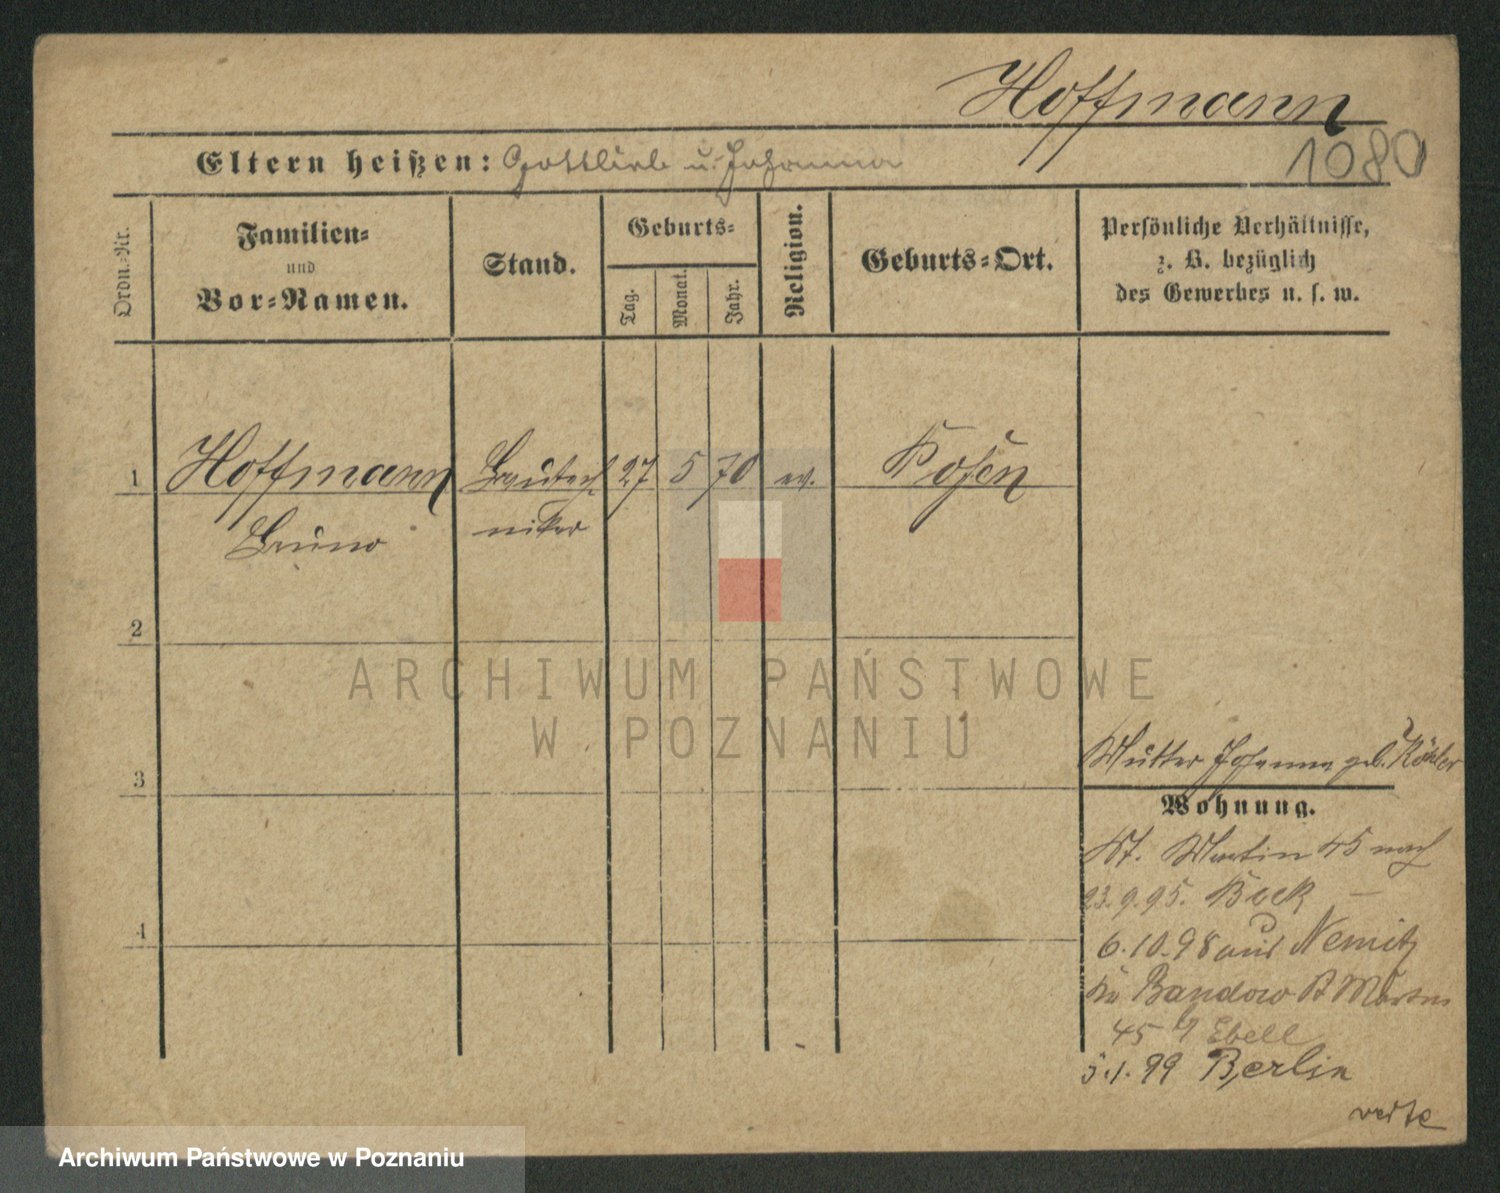 Hoffmann
1080
Eltern heißen: Gottlieb u. Johanna
Ordn.-Nr.
Familien-
und
Vor-Namen.
Stand.
Geburts-
Tag.
Monat.
Jahr.
Religion.
Geburts-Ort.
Persönliche Verhältnisse,
z. B. bezüglich
des Gewerbes u. s. w.
1 Hoffmann Bautech- 27 5 70 ev. Posen
Bruno niker
2
3
4
Mutter Johanna geb. Köhler
Wohnung.
St. Martin 45 nach
23.9.95. Bock -
6.10.98 aus Nemitz
Bandow St Martin
45 b Ebell
5.1.99 Berlin
verte
ARCHIWUM PAŃSTWOWE
W POZNANIU
Archiwum Państwowe w Poznaniu